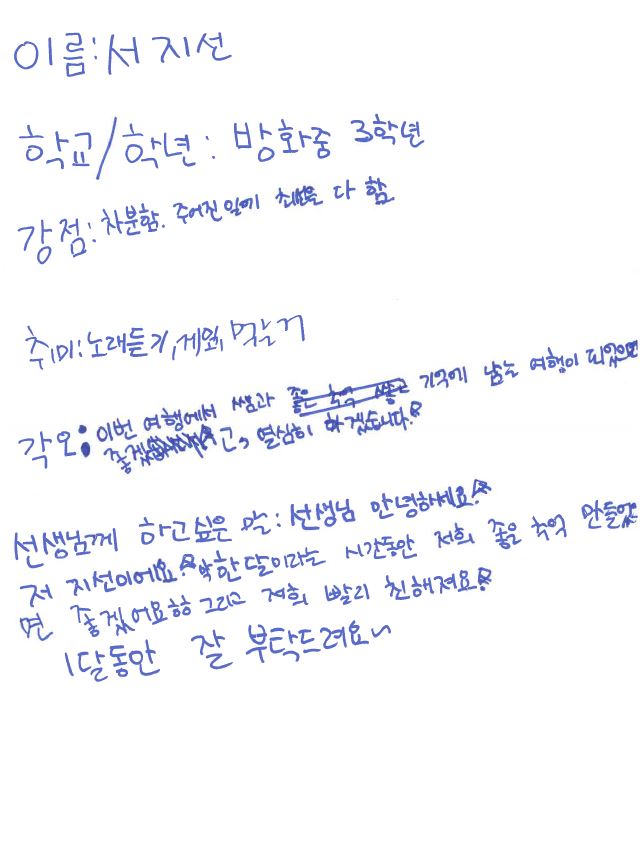 이름:서 지선
학교/학년: 방화중 3학년
강점:차분함. 주어진일에 최선을 다 함
취미:노래듣기,게임,먹는거
각오: 이번 여행에서 쌤과 기억에 남는 여행이 되었으면
좋겠고, 열심히 하겠습니다.
선생님께 하고싶은 말: 선생님 안녕하세요
저 지선이에요 약한달이라는 시간동안 저희 좋은 추억 만들었
면 좋겠어요ㅎㅎ그리고 저희 빨리 친해져요
1달동안 잘 부탁드려요~